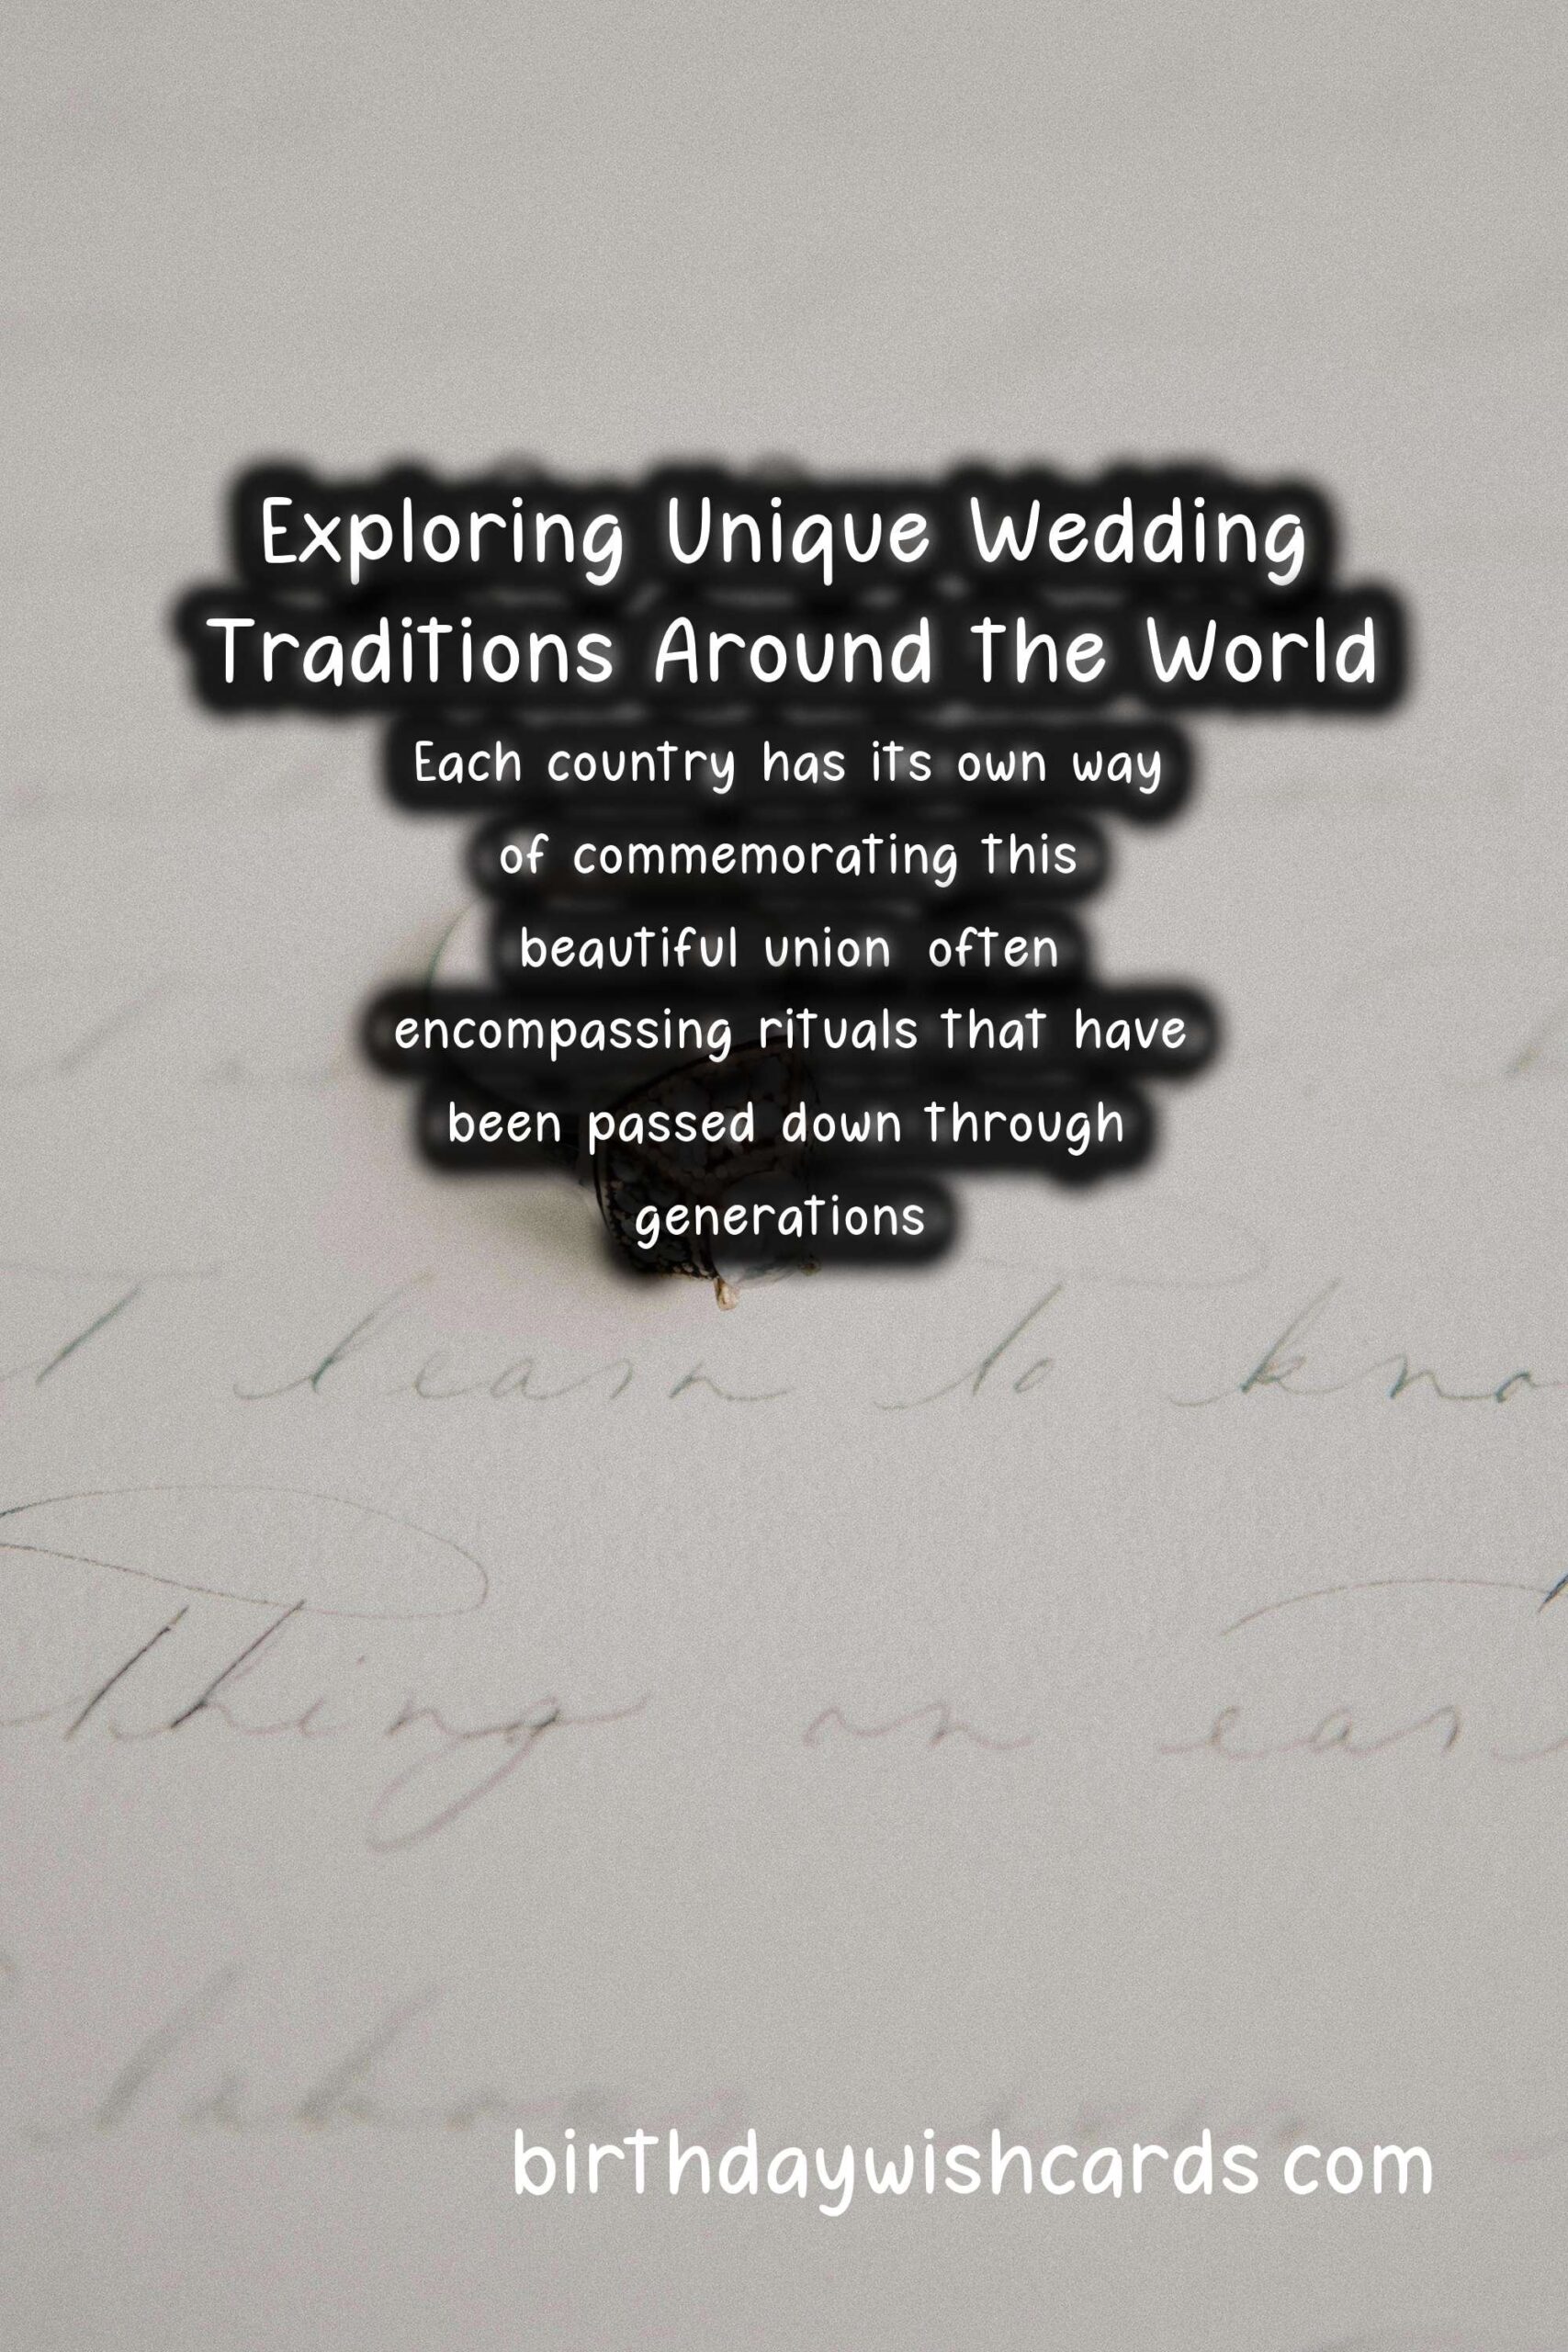 Exploring Unique Wedding
Traditions Around the World
Each country has its own way
of commemorating this
beautiful union often
encompassing rituals that have
been passed down through
generations
learn to kno
Thing on ear
birthdaywishcards com